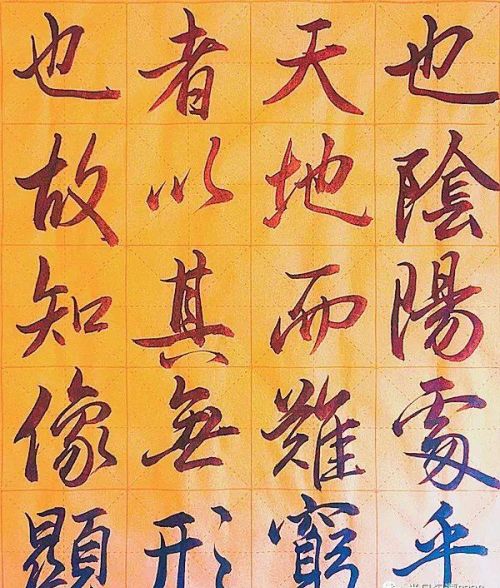 也陰陽處乎
天地而難窮
者以其無形
也故知像顯